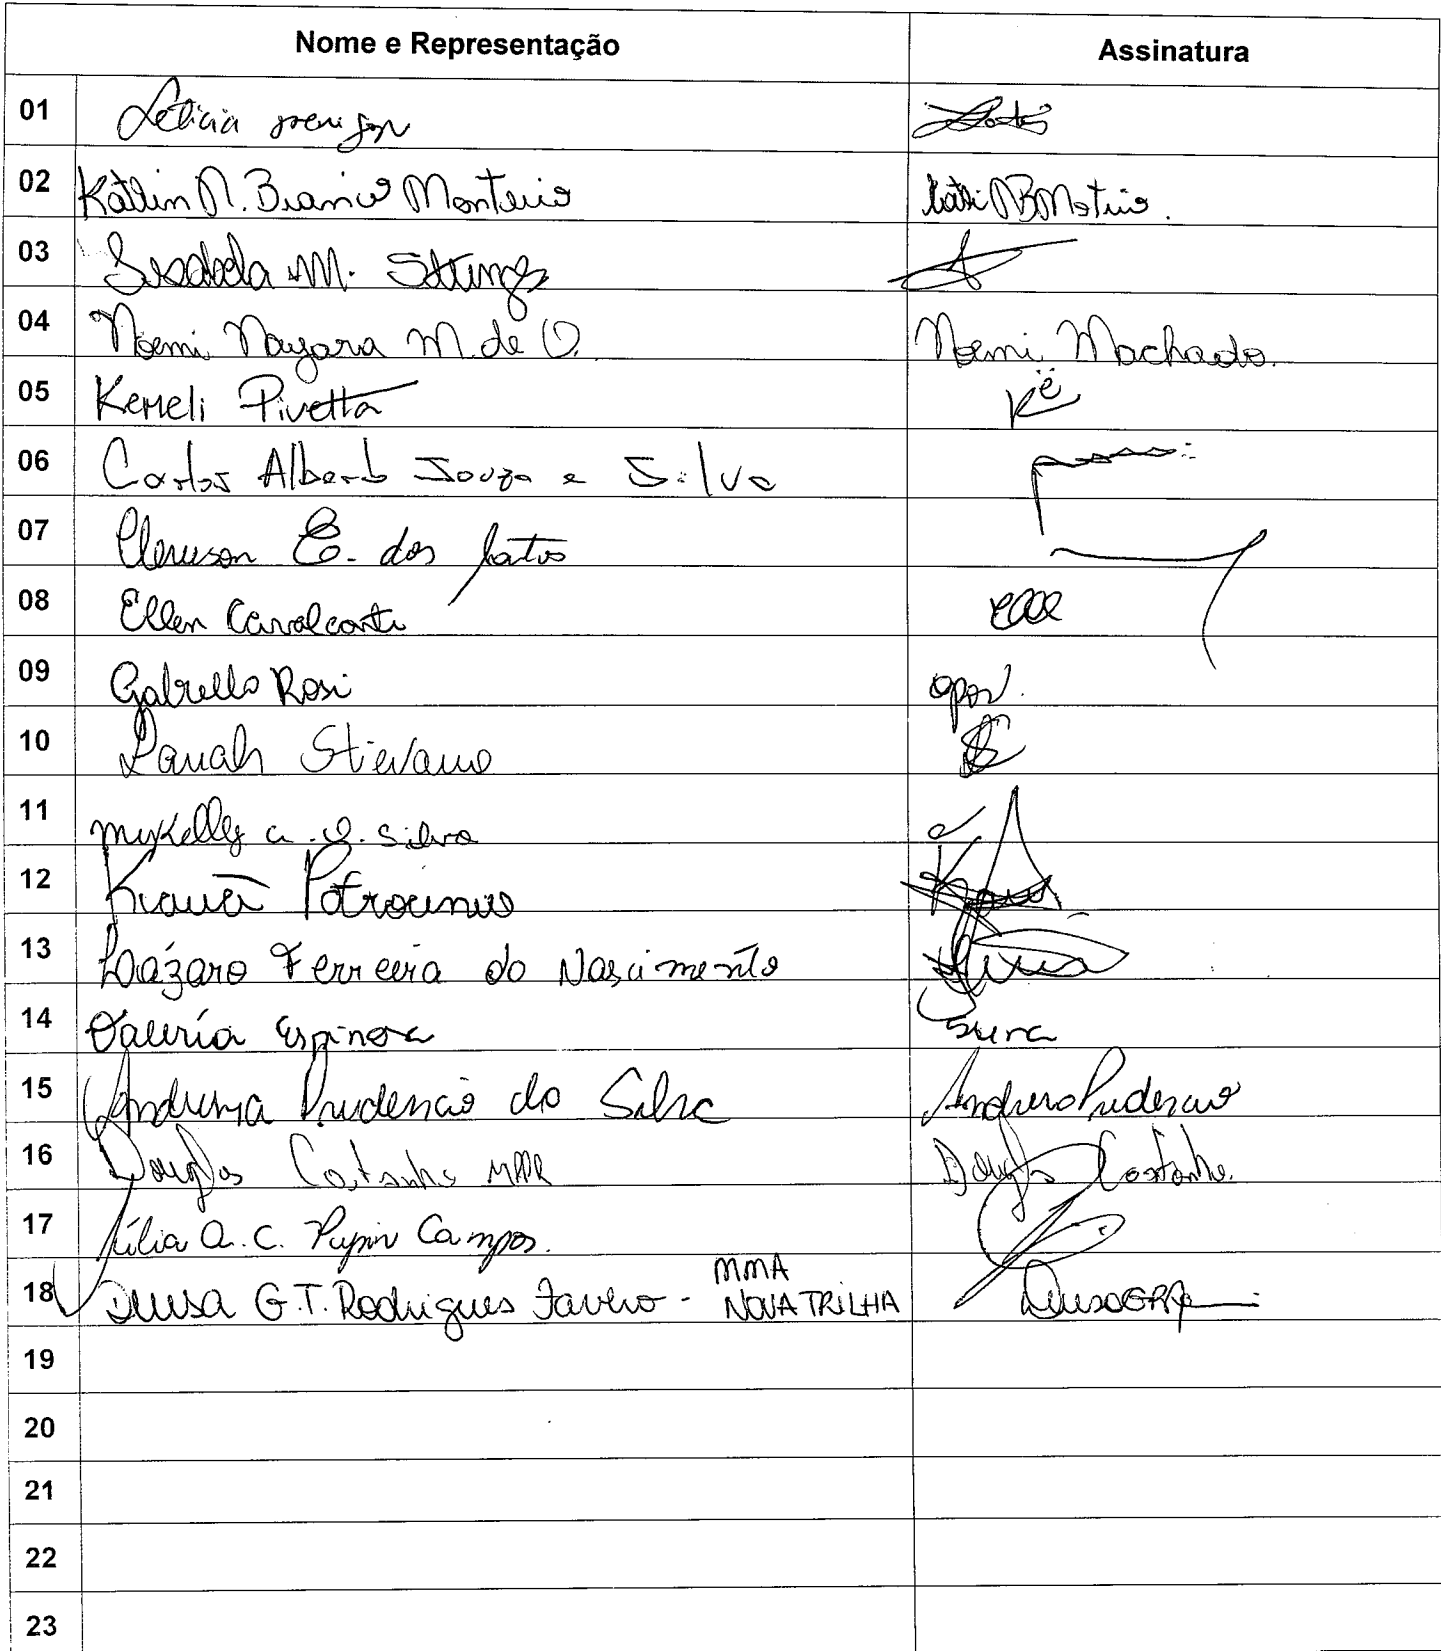 Nome e Representação Assinatura
01 Leticia
02 Kátlin N. Bianco Monteiro
03 Isabela M.
04 Noemi Nayara M. de O. Noemi Machado.
05 Kemeli Pivetta Kë
06 Carlos Alberto Souza e Silva
07 Cleverson E. dos Santos
08 Ellen Cavalcante
09 Gabriella Rosi
10 Stievano
11 Mykelly a. S. Silva
12 Kauã Patrocinio
13 Lázaro Ferreira do Nascimento
14 Valéria Espinosa
15 Andressa Prudencio da Silva Andressa Prudencio
16 Douglas Castanho Douglas Castanho.
17 Júlia A. C. Pupin Campos.
18 Deusa G.T. Rodrigues Favero - MMA NOVA TRILHA
19
20
21
22
23